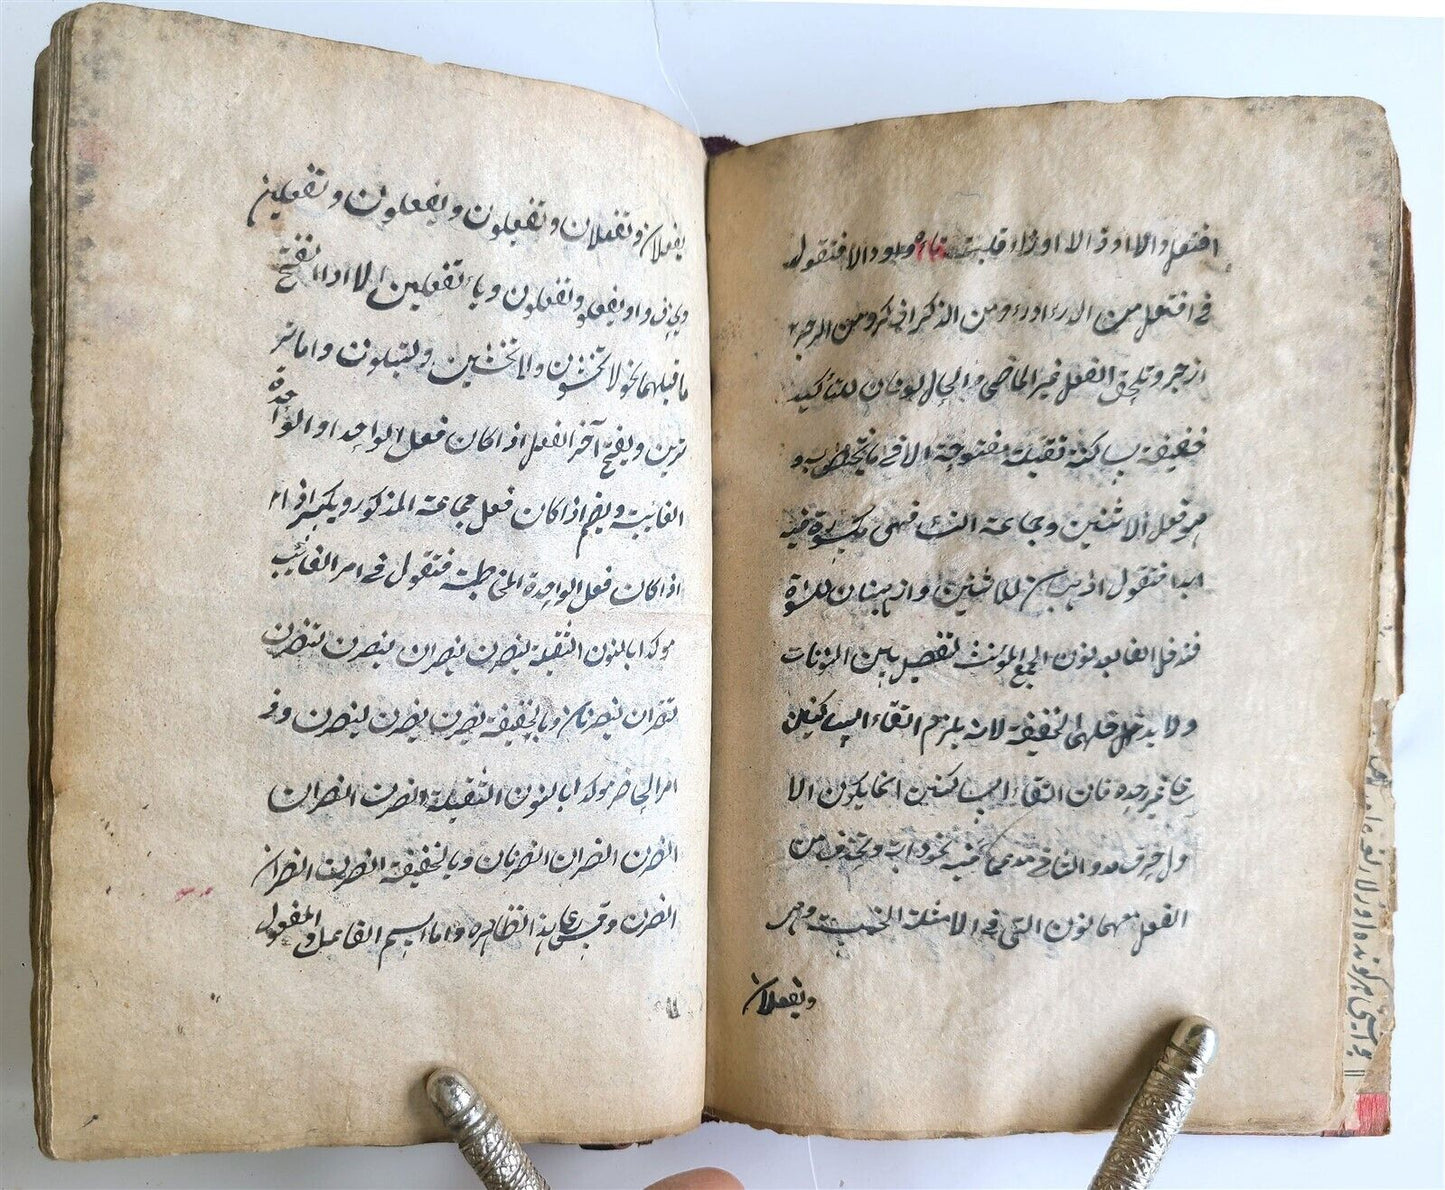 افتعل دالا او ذالا او زاء قلبت تاؤه دالا فتقول
فى افتعل من الدرء ادرء ومن الذكر اذكر ومن الزجر
ازجر وتلحق الفعل غير الماضى والحال نونان للتأكيد
خفيفة ساكنة ثقيلة مفتوحة الا فى ما تختص به و
هو فعل الاثنين وجماعة النساء فهى مكسورة فيه
ابدا فتقول اذهبان للاثنين واذهبنان للنسوة
فتدخل الفا بعد نون الجمع المؤنث لتفصل بين النونات
ولا يدخلهما الخفيفة لانه يلزم التقاء الساكنين
على غير حده فان التقاء الساكنين انما يكون الا
ول حرف مد والثانى مدغما فيه نحو دابة وتحذف من
الفعل معهما نون التى فى الامثلة الخمسة وهى
وتفعلان
يفعلان وتفعلان وتفعلون ويفعلون وتفعلين
واو يفعلون وتفعلون وياء تفعلين الا اذا انفتح
ما قبلهما نحو لا تخشون ولا تخشين ولتبلون واما
ترين ويفتح آخر الفعل اذا كان فعل الواحد او الواحدة
الغائبة ويضم اذا كان فعل جماعة المذكور ويكسر
اذا كان فعل الواحدة المخاطبة فتقول فى امر الغائب
موكدا بالنون الثقيلة لينصرن لينصران لينصرن لتنصرن
لتنصران لينصرنان وبالخفيفة لينصرن لينصرن لتنصرن وفى
امر الحاضر موكدا بالنون الثقيلة انصرن انصران
انصرن انصرن انصران انصرنان وبالخفيفة انصرن انصرن
انصرن وقس على هذا نظائره واما اسم الفاعل والمفعول